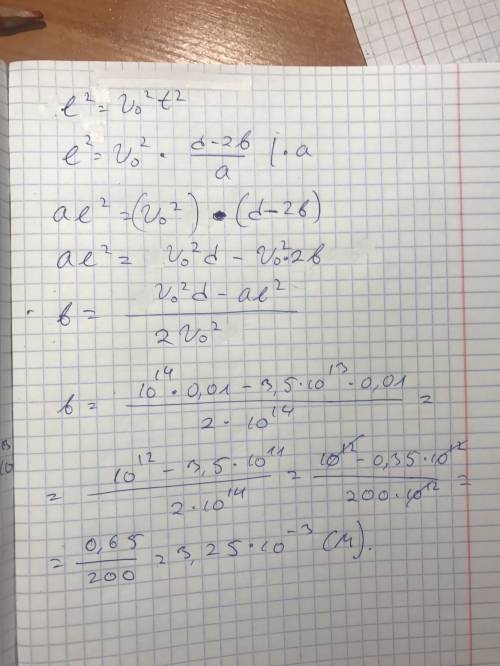 l² = v₀² t²
l² = v₀² · (d-2b)/a | · a
al² = (v₀²) · (d-2b)
al² = v₀²d - v₀²·2b
b = (v₀²d - al²)/(2v₀²)
b = (10¹⁴ · 0,01 - 3,5·10¹³ · 0,01)/(2·10¹⁴) =
= (10¹² - 3,5·10¹¹)/(2·10¹⁴) = (10¹² - 0,35·10¹²)/(200·10¹²) =
= 0,65/200 = 3,25·10⁻³ (м).